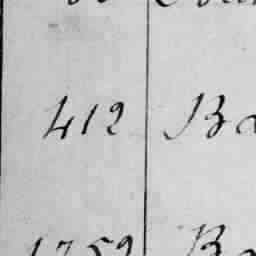 412 Ba
1759 Ba